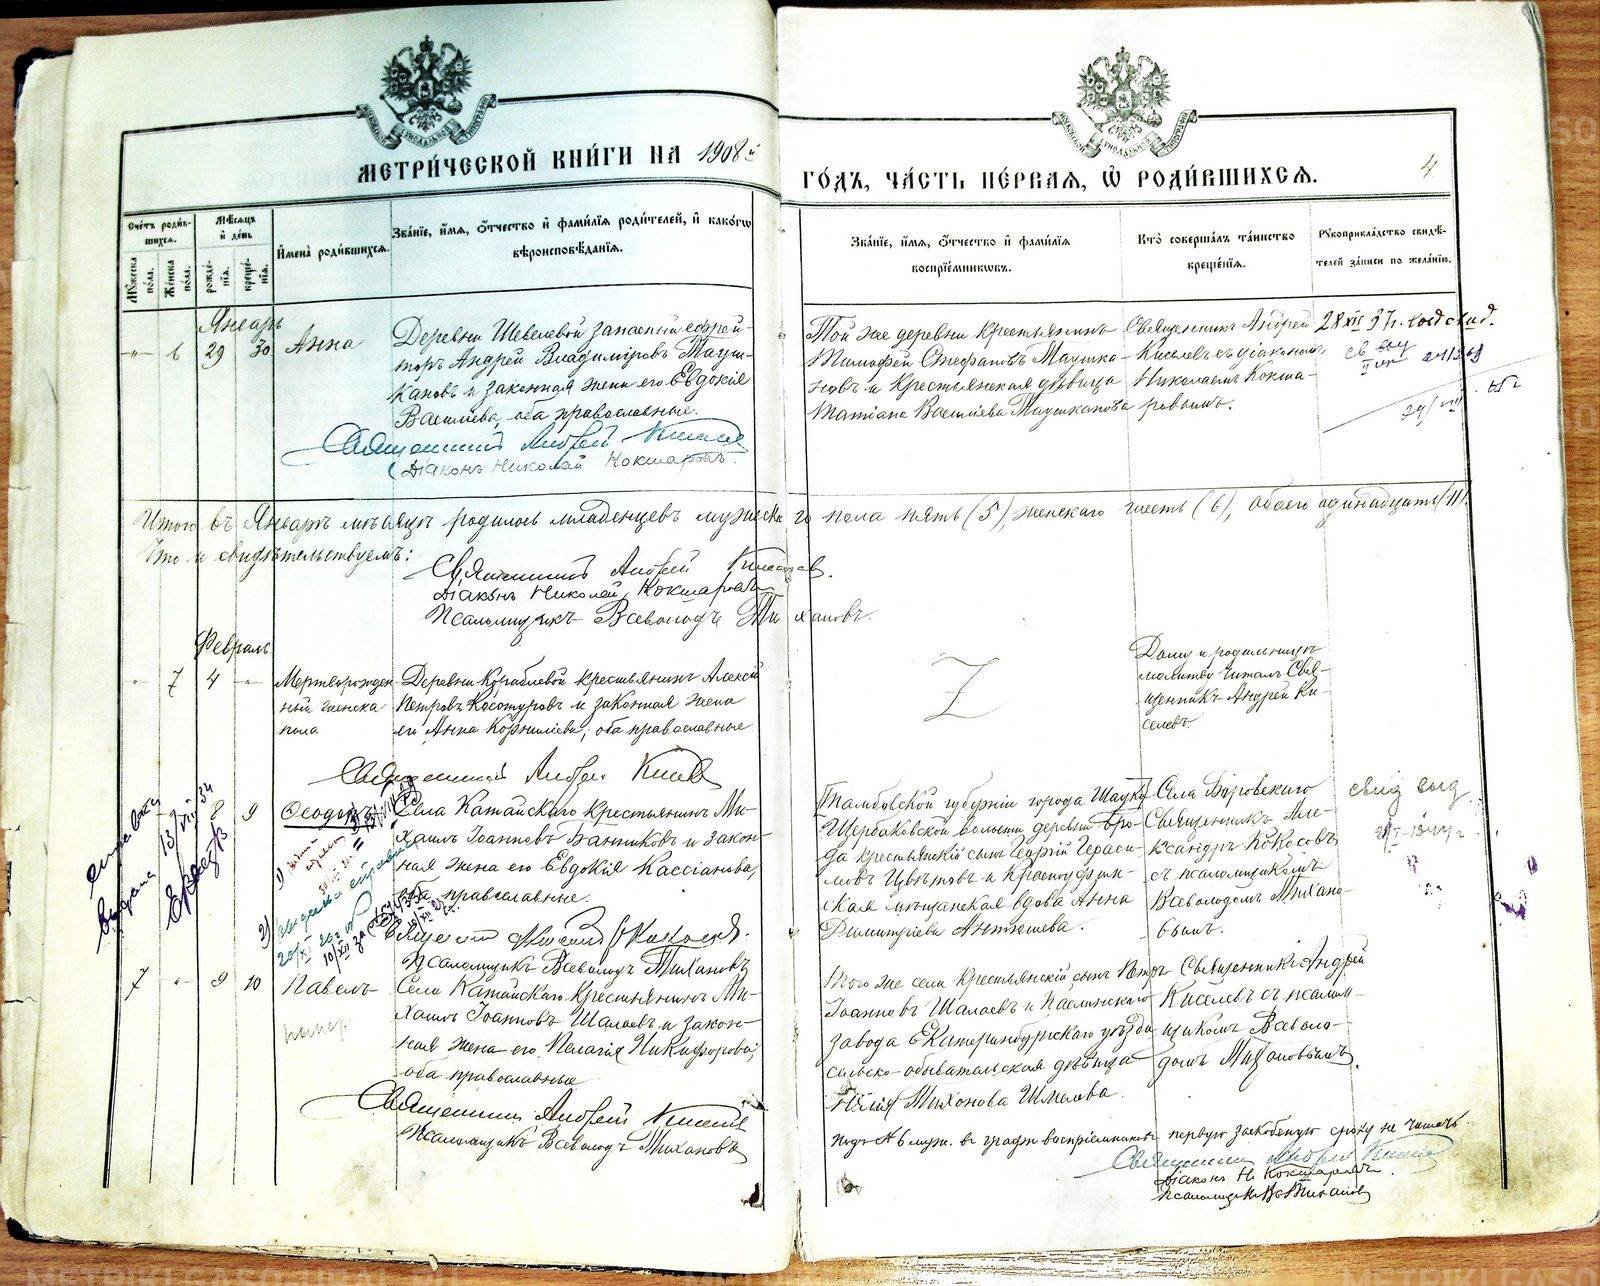 МЕТРИ́ЧЕСКОЙ КНИ́ГИ НА 1908й
ГО́ДЪ, ЧА́СТЬ ПЕ́РВАЯ, Ѡ҆ РОДИ́ВШИХСЯ.
4
Сче́тъ роди́вшихся.
Мѣ́сяцъ и҆ де́нь
И҆мена̀ роди́вшихся.
Зва́нїе, и҆́мя, ѻ҆́тчество и҆ фами́лїя роди́телей, и҆ како́гѡ
вѣроисповѣ́данїя.
Зва́нїе, и҆́мя, ѻ҆́тчество и҆ фами́лїя
воспрїе́мникѡвъ.
Кто̀ соверша́лъ та́инство
креще́нїя.
Рꙋкоприкла́дство свидѣ́-
телей за́писи по жела́нїю.
Мꙋ́жеска по́ла.
Же́нска по́ла.
рожде́нїя.
креще́нїя.
Январь
-"- 6 29 30 Анна
Деревни Шевелевой запасный ефрей-
торъ Андрей Владиміровъ Мауш-
кановъ и законная жена его Евдокія
Васильева, оба православные.
Священникъ Андрей Киселевъ
Діаконъ Николай Кокшаровъ.
Той же деревни крестьянинъ
Тимофей Стефановъ Маушка-
новъ и крестьянская дѣвица
Татіана Васильева Маушканова
Священникъ Андрей
Киселевъ съ діакономъ
Николаемъ Кокша-
ровымъ.
28 XII 37 г.
Итого въ Январѣ мѣсяцѣ родилось младенцевъ мужескаго пола пять (5), женскаго шесть (6), обоего одинадцать (11).
Что и свидѣтельствуемъ:
Священникъ Андрей Киселев.
Діаконъ Николай Кокшаровъ
Псаломщикъ Всеволодъ Тихановъ.
Февраль
-"- 7 4 -"-
Мертворожден-
ный женска
пола
Деревни Кораблевой крестьянинъ Алексій
Петровъ Косотуровъ и законная жена
его Анна Корнилiева, оба православные
Священникъ Андрей Киселевъ
Z
Дому и родильницѣ
молитву читалъ Свя-
щенникъ Андрей Ки-
селевъ.
8 9 Ѳеодоръ
Села Катайскаго крестьянинъ Ми-
хаилъ Іоанновъ Банниковъ и закон-
ная жена его Евдокія Кассіанова,
оба православные.
Псаломщикъ Всеволодъ Тихановъ
Тамбовской губерніи города Шацка
деревни
да крестьянскій сынъ Георгій Гераси-
мовъ Цвѣтовъ и Красноуфим-
ская мѣщанская вдова Анна
Димитріева Антюшева.
Села Боровскаго
Священникъ Але-
ксандръ Кокосовъ
съ псаломщикомъ
Всеволодомъ Тихано-
вымъ.
свид выд.
справка
выдана 13/VII 34
7 -"- 9 10 Павелъ
Села Катайскаго крестьянинъ Ми-
хаилъ Іоанновъ Шалаевъ и закон-
ная жена его Пелагія Никифорова,
оба православные
Священникъ Андрей Киселевъ
Псаломщикъ Всеволодъ Тихановъ
Того же села крестьянскій сынъ Петръ
Іоанновъ Шалаевъ и Каслинскаго
завода Екатеринбургскаго уѣзда
сельско-обывательская дѣвица
Юлія Тихонова Шмелева.
Священникъ Андрей
Киселевъ съ псалом-
щикомъ Всеволо-
домъ Тихановымъ.
муж. въ графѣ воспріемниковъ первую зачеркнутую строку не читать
Священникъ Андрей Киселевъ
Діаконъ Н. Кокшаровъ.
Псаломщикъ В. Тихановъ